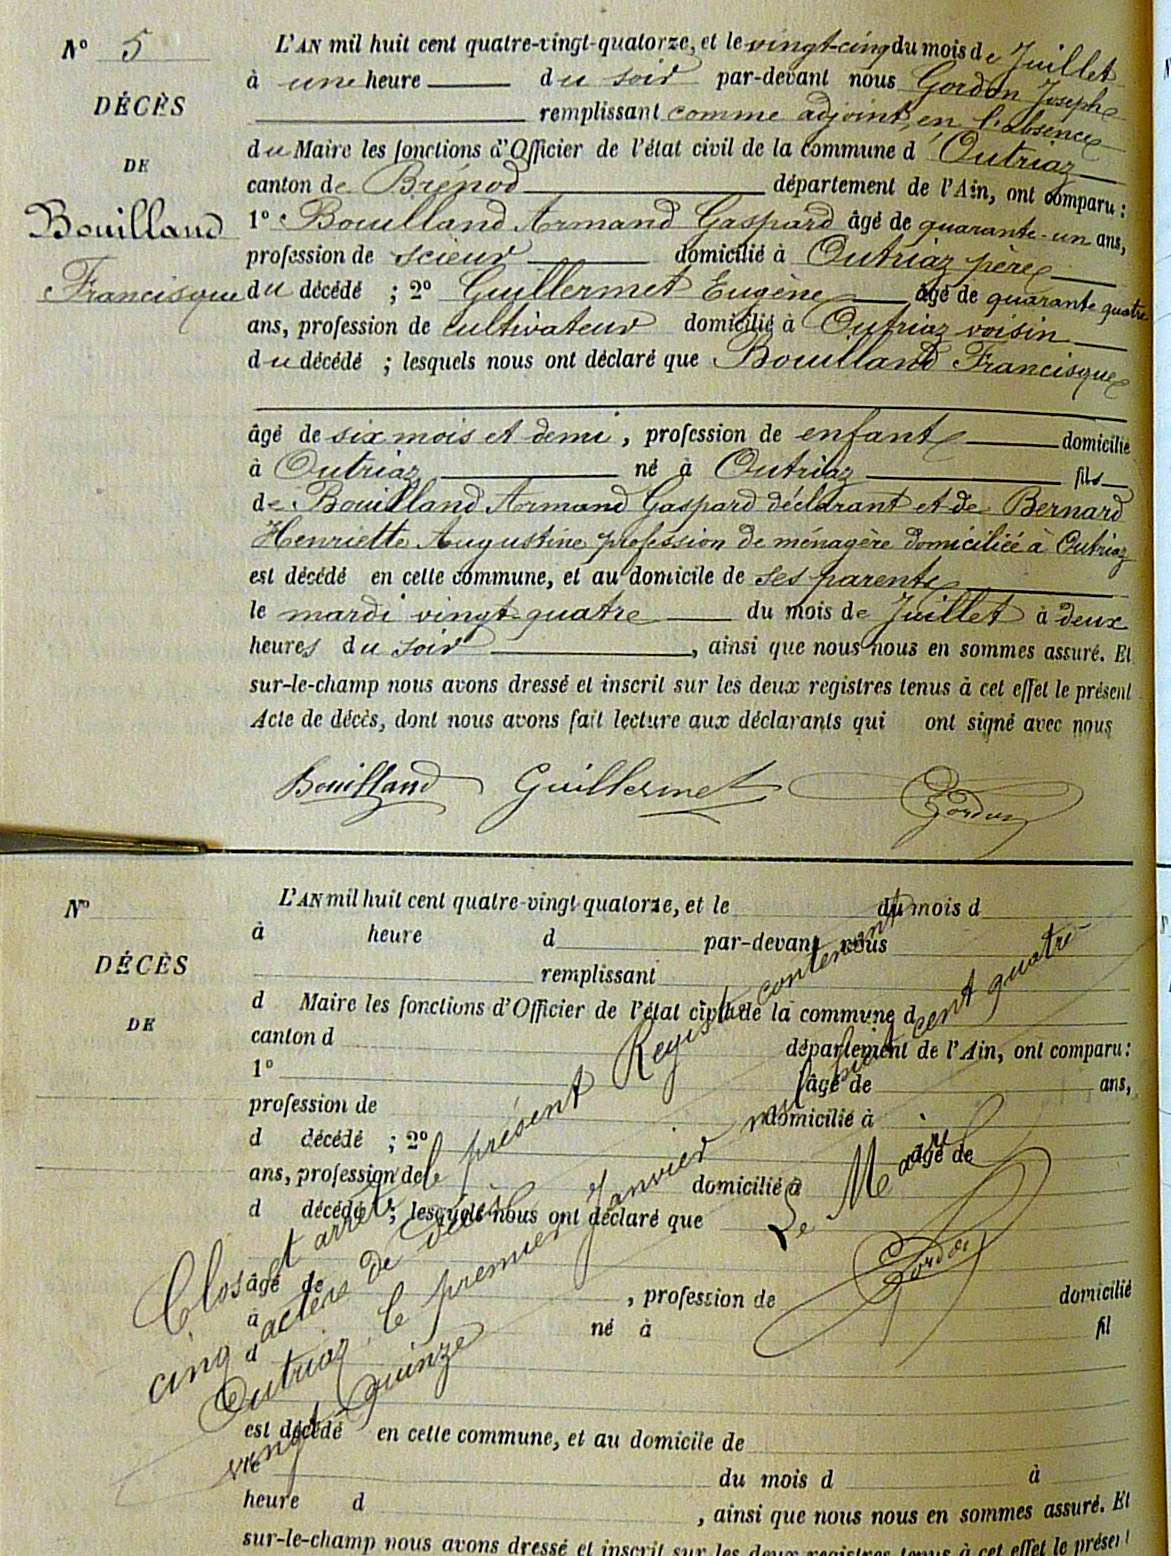 N° 5
DÉCÈS
DE
Bouilland
Francisque
L'AN mil huit cent quatre-vingt-quatorze, et le vingt-cinq du mois de Juillet
à une heure du soir par-devant nous Gordon Joseph
remplissant comme adjoint, en l'absence
du Maire les fonctions d'Officier de l'état civil de la commune d'Outriaz
canton de Brénod département de l'Ain, ont comparu :
1° Bouilland Armand Gaspard âgé de quarante-un ans,
profession de scieur domicilié à Outriaz père
du décédé ; 2° Guillermet Eugène âgé de quarante quatre
ans, profession de cultivateur domicilié à Outriaz voisin
du décédé ; lesquels nous ont déclaré que Bouilland Francisque
âgé de six mois et demi, profession de enfant domicilié
à Outriaz né à Outriaz fils
de Bouilland Armand Gaspard déclarant et de Bernard
Henriette Augustine profession de ménagère domiciliée à Outriaz
est décédé en cette commune, et au domicile de ses parents
le mardi vingt-quatre du mois de Juillet à deux
heures du soir, ainsi que nous nous en sommes assuré. Et
sur-le-champ nous avons dressé et inscrit sur les deux registres tenus à cet effet le présent
Acte de décès, dont nous avons fait lecture aux déclarants qui ont signé avec nous
Bouilland Guillermet Gordon
N°
DÉCÈS
DE
L'AN mil huit cent quatre-vingt-quatorze, et le du mois d
à heure d par-devant nous
remplissant
d Maire les fonctions d'Officier de l'état civil de la commune d
canton d département de l'Ain, ont comparu :
1° âgé de ans,
profession de domicilié à
d décédé ; 2° âgé de
ans, profession de domicilié à
d décédé ; lesquels nous ont déclaré que
âgé de , profession de domicilié
à né à fil
d
est décédé en cette commune, et au domicile de
le du mois d à
heure d , ainsi que nous nous en sommes assuré. Et
sur-le-champ nous avons dressé et inscrit sur les deux registres tenus à cet effet le présent
Clos et arrêté le présent Registre contenant
cinq actes de décès
Outriaz, le premier Janvier mil huit cent quatre
vingt Quinze
Le Maire
Gordon